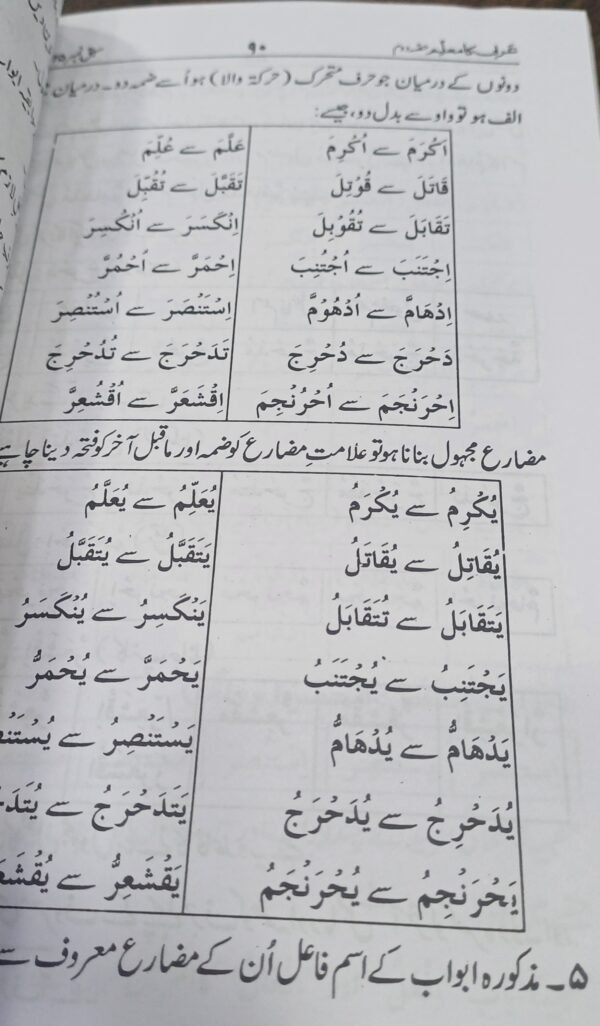 عربی کا معلّم حصّہ دوم ۹۰
دونوں کے درمیان جو حرف متحرک (حرکۃ والا) ہو اُسے ضمہ دو۔ درمیان
الف ہو تو واو سے بدل دو، جیسے:
اَکْرَمَ سے اُکْرِمَ عَلَّمَ سے عُلِّمَ
قَاتَلَ سے قُوْتِلَ تَقَبَّلَ سے تُقُبِّلَ
تَقَابَلَ سے تُقُوْبِلَ اِنْکَسَرَ سے اُنْکُسِرَ
اِجْتَنَبَ سے اُجْتُنِبَ اِحْمَرَّ سے اُحْمُرَّ
اِدْهَامَّ سے اُدْهُوْمَّ اِسْتَنْصَرَ سے اُسْتُنْصِرَ
دَحْرَجَ سے دُحْرِجَ تَدَحْرَجَ سے تُدُحْرِجَ
اِحْرَنْجَمَ سے اُحْرُنْجِمَ اِقْشَعَرَّ سے اُقْشُعِرَّ
مضارع مجہول بنانا ہو تو علامتِ مضارع کو ضمہ اور ماقبل آخر کو فتحہ دینا چاہے
یُکْرِمُ سے یُکْرَمُ یُعَلِّمُ سے یُعَلَّمُ
یُقَاتِلُ سے یُقَاتَلُ یَتَقَبَّلُ سے یُتَقَبَّلُ
یَتَقَابَلُ سے تُتَقَابَلُ یَنْکَسِرُ سے یُنْکَسَرُ
یَجْتَنِبُ سے یُجْتَنَبُ یَحْمَرَّ سے یُحْمَرُّ
یَدْهَامُّ سے یُدْهَامُّ یَسْتَنْصِرُ سے
یُدَحْرِجُ سے یُدَحْرَجُ یَتَدَحْرَجُ سے
یَحْرَنْجِمُ سے یُحْرَنْجَمُ یَقْشَعِرُّ سے
۵۔ مذکورہ ابواب کے اسم فاعل اُن کے مضارع معروف سے